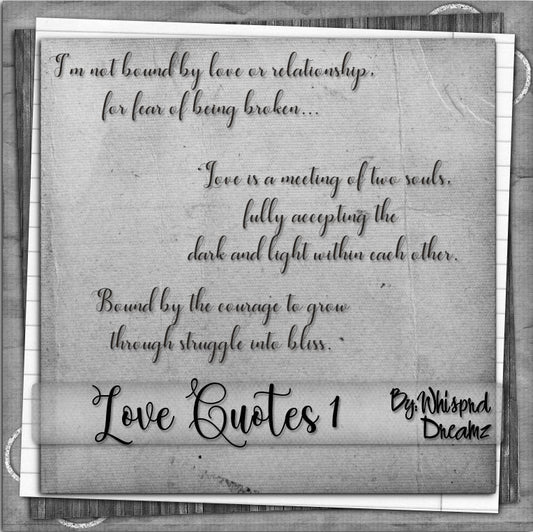 I'm not bound by love or relationship,
for fear of being broken...
"Love is a meeting of two souls,
fully accepting the
dark and light within each other.
Bound by the courage to grow
through struggle into bliss. "
Love Quotes 1
By: Whisprd
Dreamz